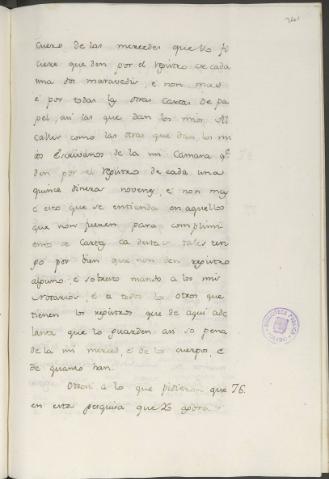 cuero de las mercedes que Yo fi
ciere que den por el registro de cada
una dos maravedis, e non mas
e por todas las otras Cartas de pa
pel, asi las que dan los mios Al
calles como las otras que dan los mi
os Escrivanos de la mi Camara q.e
den por el registro de cada una
quince dineros novenes, e non mas
e esto que se entienda en aquello
que non fueren para complimi
ento de Cartas ca destas tales ten
go por bien que non den registro
alguno, e sobresto mando a los mis
Notarios, e a todos los otros que
tienen los registros que de aqui ade
lante que lo guarden asi so pena
de la mi merced, e de los cuerpos, e
de quanto han.
Otrosi a lo que pidieron que 76.
en esta pesquisa que Yo agora